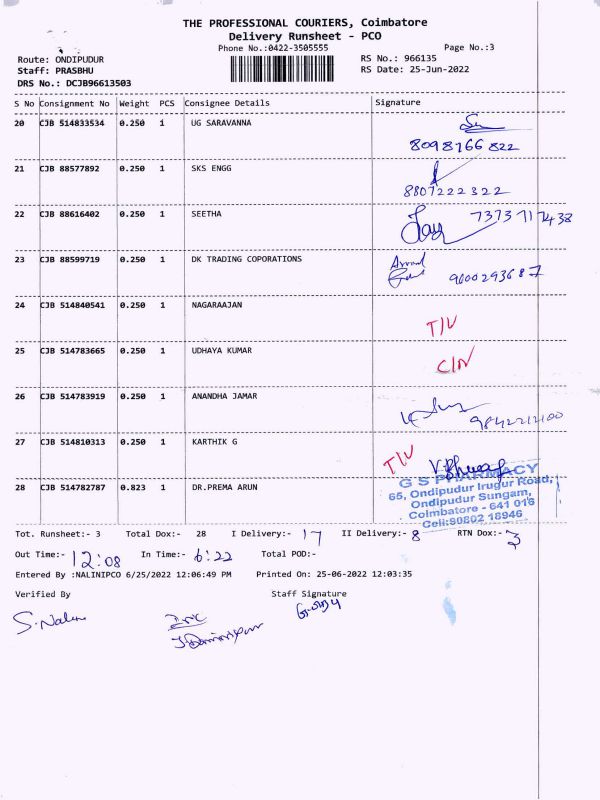 THE PROFESSIONAL COURIERS, Coimbatore
Delivery Runsheet - PCO
Phone No.:0422-3505555 Page No.:3
Route: ONDIPUDUR RS No.: 966135
Staff: PRASBHU RS Date: 25-Jun-2022
DRS No.: DCJB96613503
S No Consignment No Weight PCS Consignee Details Signature
20 CJB 514833534 0.250 1 UG SARAVANNA
8098166 822
21 CJB 88577892 0.250 1 SKS ENGG
8807222322
22 CJB 88616402 0.250 1 SEETHA
7373717438
23 CJB 88599719 0.250 1 DK TRADING COPORATIONS
9600293687
24 CJB 514840541 0.250 1 NAGARAAJAN
T/V
25 CJB 514783665 0.250 1 UDHAYA KUMAR
C/N
26 CJB 514783919 0.250 1 ANANDHA JAMAR
9842212100
27 CJB 514810313 0.250 1 KARTHIK G
T/V
28 CJB 514782787 0.823 1 DR.PREMA ARUN
G S PHARMACY
65, Ondipudur Irugur Road,
Ondipudur Sungam,
Coimbatore - 641 016
Cell:90802 18946
Tot. Runsheet:- 3 Total Dox:- 28 I Delivery:- 17 II Delivery:- 8 RTN Dox:- 3
Out Time:- 12:08 In Time:- 6:22 Total POD:-
Entered By :NALINIPCO 6/25/2022 12:06:49 PM Printed On: 25-06-2022 12:03:35
Verified By Staff Signature